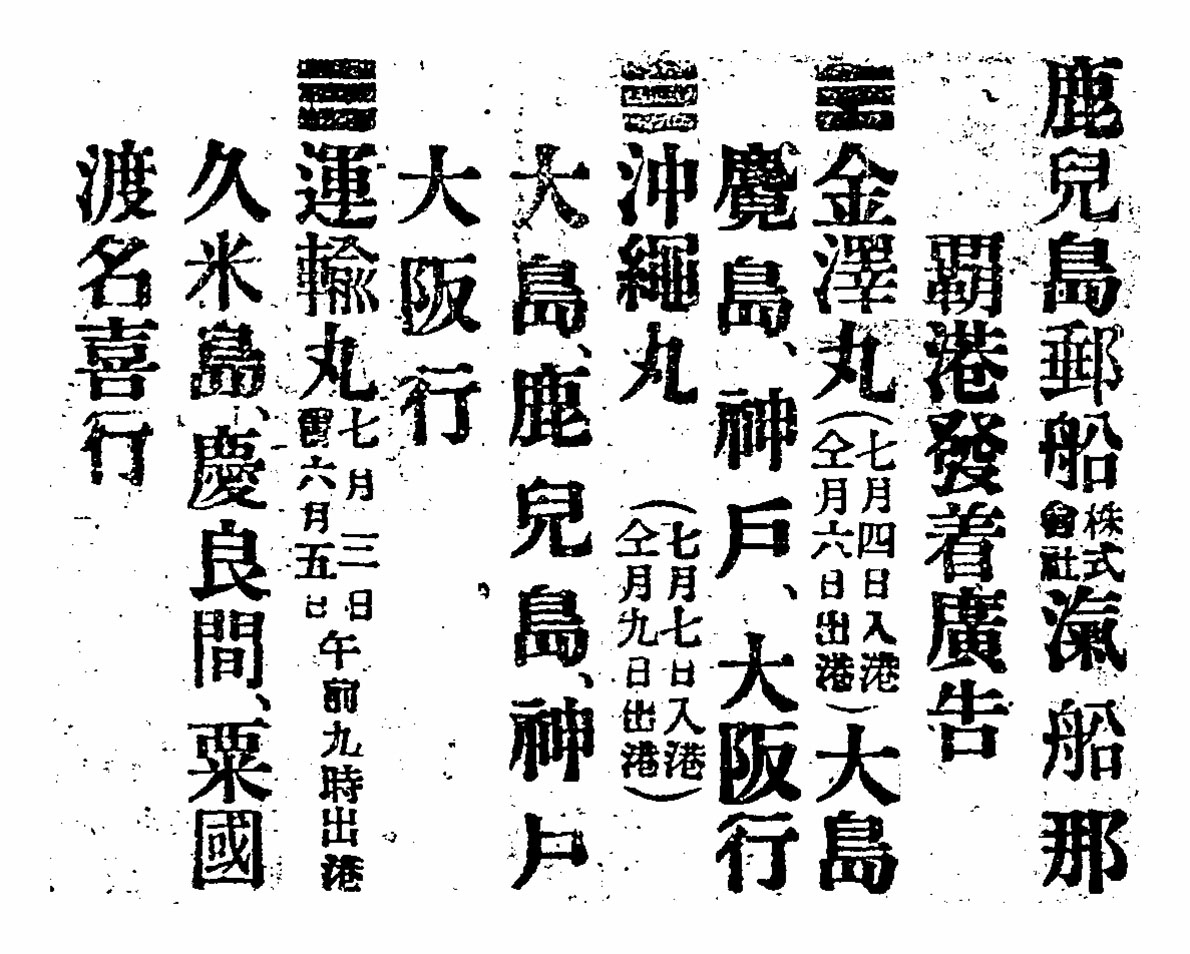 鹿兒島郵船株式會社滊船那
覇港發着廣告
金澤丸(七月四日入港
仝月六日出港)大島
麑島、神戶、大阪行
沖繩丸(七月七日入港
仝月九日出港)
大島、鹿兒島、神戶
大阪行
運輸丸七月三日
舊六月五日午前九時出港
久米島、慶良間、粟國
渡名喜行